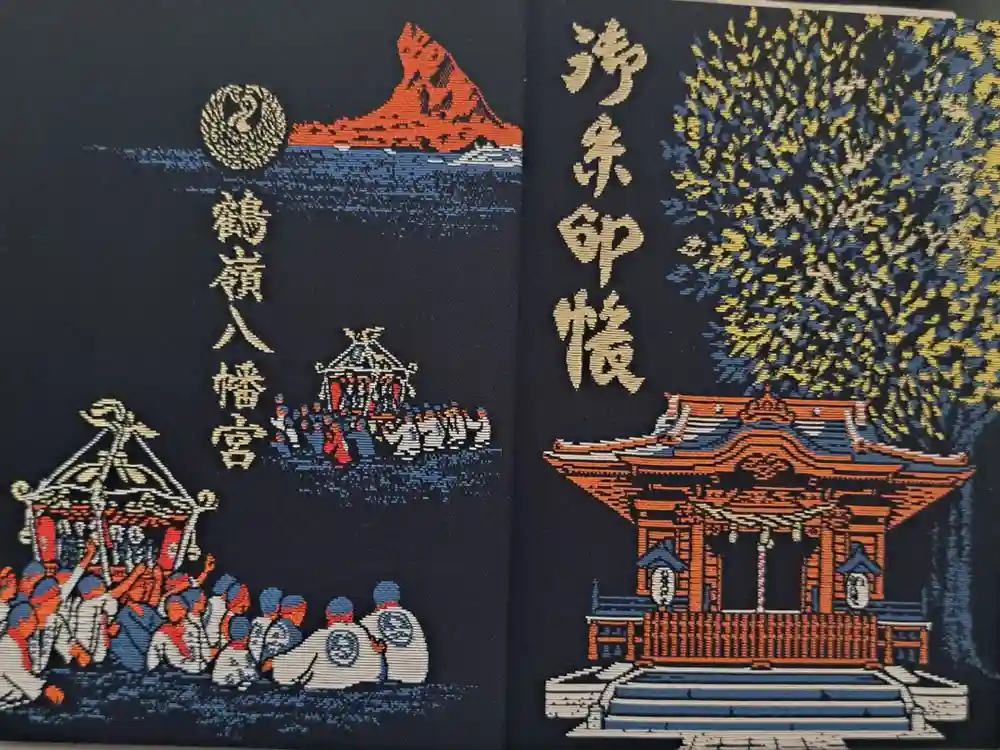 御朱印帳
鶴嶺八幡宮